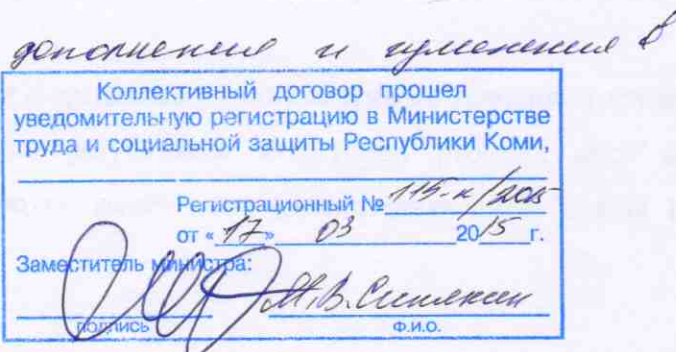 дополнения и изменения в
Коллективный договор прошел
уведомительную регистрацию в Министерстве
труда и социальной защиты Республики Коми,
Регистрационный № 115-к/2015
от «17» 03 2015 г.
Заместитель министра:
М.В.
подпись Ф.И.О.